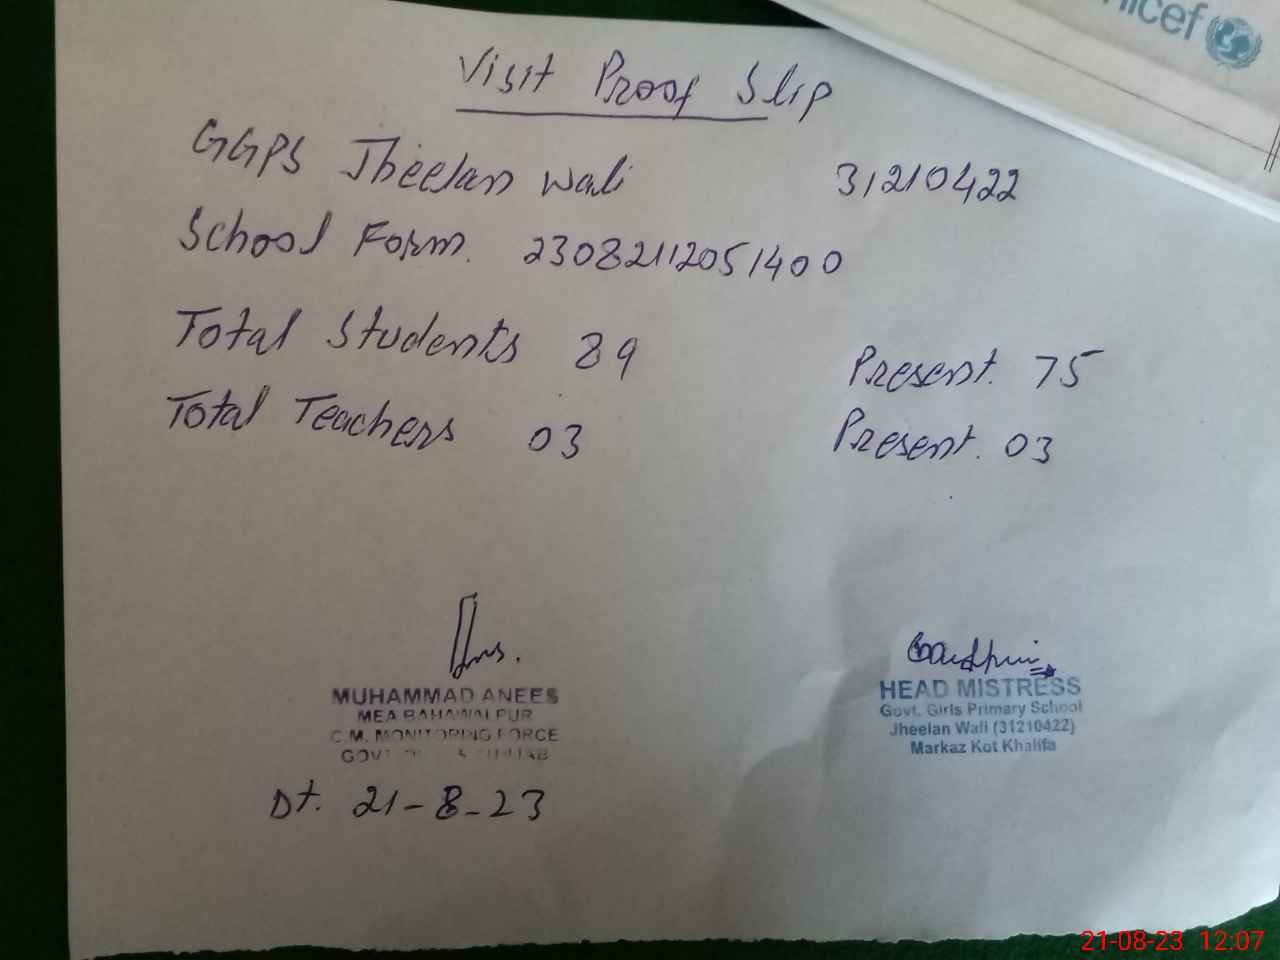 unicef
Visit Proof Slip
GGPS Jheelan Wali 31210422
School Form. 23082112051400
Total Students 89 Present. 75
Total Teachers 03 Present. 03
MUHAMMAD ANEES
MEA BAHAWALPUR
C.M. MONITORING FORCE
GOVT PUNJAB
Dt. 21-8-23
HEAD MISTRESS
Govt. Girls Primary School
Jheelan Wali (31210422)
Markaz Kot Khalifa
21-08-23 12:07